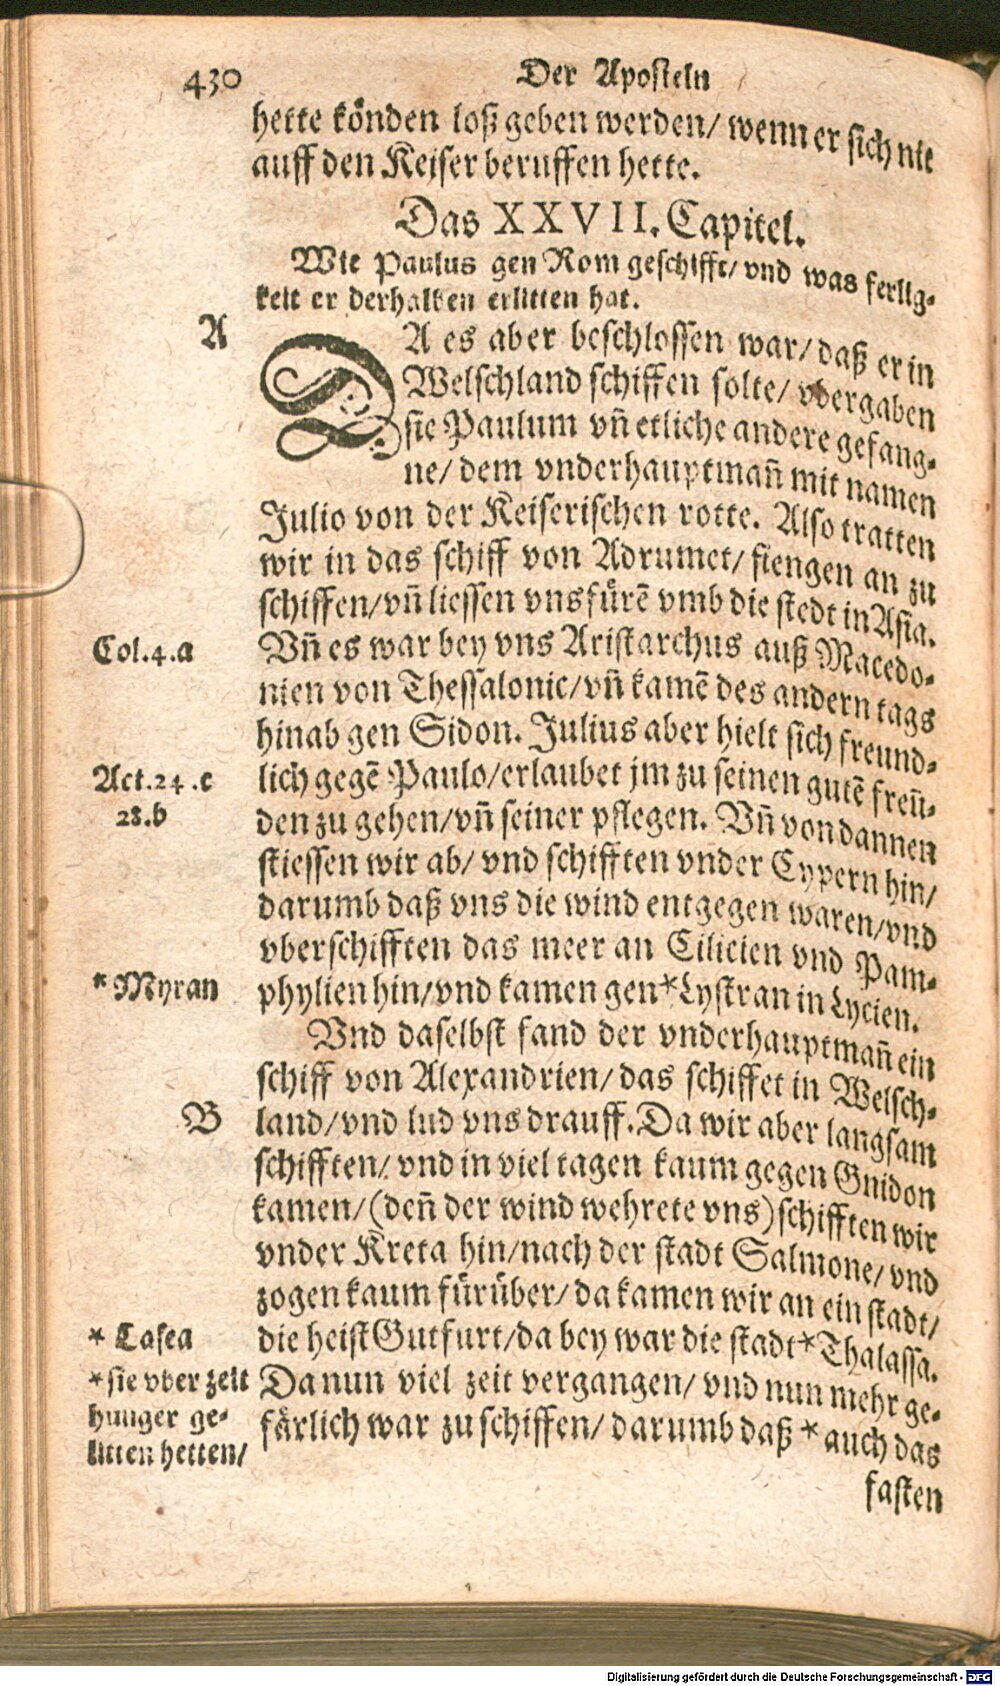 430 Der Aposteln
hette koͤnden loß geben werden/ wenn er sich nit
auff den Keiser beruffen hette.
Das XXVII. Capitel.
Wie Paulus gen Rom geschifft/ vnd was ferlig-
keit er derhalben erlitten hat.
A
DA es aber beschlossen war/ daß er in
Welschland schiffen solte/ vbergaben
sie Paulum vñ etliche andere gefang-
ne/ dem vnderhauptmañ mit namen
Julio von der Keiserischen rotte. Also tratten
wir in das schiff von Adrumet/ fiengen an zu
schiffen/ vñ liessen vns fuͤrẽ vmb die stedt in Asia.
Col.4.a
Vñ es war bey vns Aristarchus auß Macedo-
nien von Thessalonic/ vñ kamẽ des andern tags
hinab gen Sidon. Julius aber hielt sich freund-
Act.24.e
lich gegẽ Paulo/ erlaubet jm zu seinen gutẽ freũ-
28.b
den zu gehen/ vñ seiner pflegen. Vñ von dannen
stiessen wir ab/ vnd schifften vnder Cypern hin/
darumb daß vns die wind entgegen waren/ vnd
vberschifften das meer an Cilicien vnd Pam-
* Myran
phylien hin/ vnd kamen gen * Lystran in Lycien.
Vnd daselbst fand der vnderhauptmañ ein
schiff von Alexandrien/ das schiffet in Welsch-
B
land/ vnd lud vns drauff. Da wir aber langsam
schifften/ vnd in viel tagen kaum gegen Gnidon
kamen/ (deñ der wind wehrete vns) schifften wir
vnder Kreta hin/ nach der stadt Salmone/ vnd
zogen kaum fuͤruͤber/ da kamen wir an ein stadt/
* Lasea
die heist Gutfurt/ da bey war die stadt * Thalassa.
* sie vber zeit
Da nun viel zeit vergangen/ vnd nun mehr ge-
hunger ge-
faͤrlich war zu schiffen/ darumb daß * auch das
litten hetten/
fasten
Digitalisierung gefördert durch die Deutsche Forschungsgemeinschaft - DFG